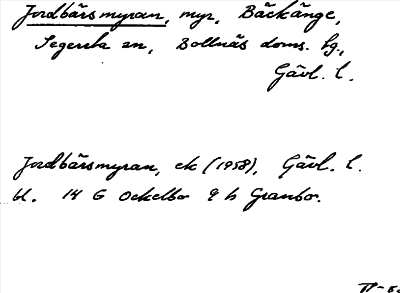 Jordbärsmyran, myr, Bäckänge,
Segersta sn, Bollnäs doms. hg.,
Gävl. l.
Jordbärsmyran, ek (1958), Gävl. l.
bl. 14 G Ockelbo 9 h Granbo.